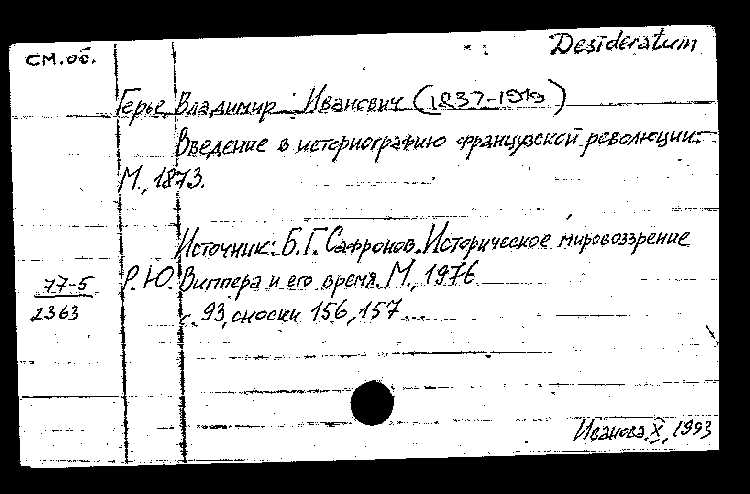 Desideratum
см. об.
Герье, Владимир Иванович (1837-1919)
Введение в историографию французской революции.-
М., 1873.
Источник: Б.Г. Сафронов. Историческое мировоззрение
77-5 Р.Ю. Виппера и его время. М., 1976
2363 с. 93, сноски 156, 157...
Иванова, X, 1993